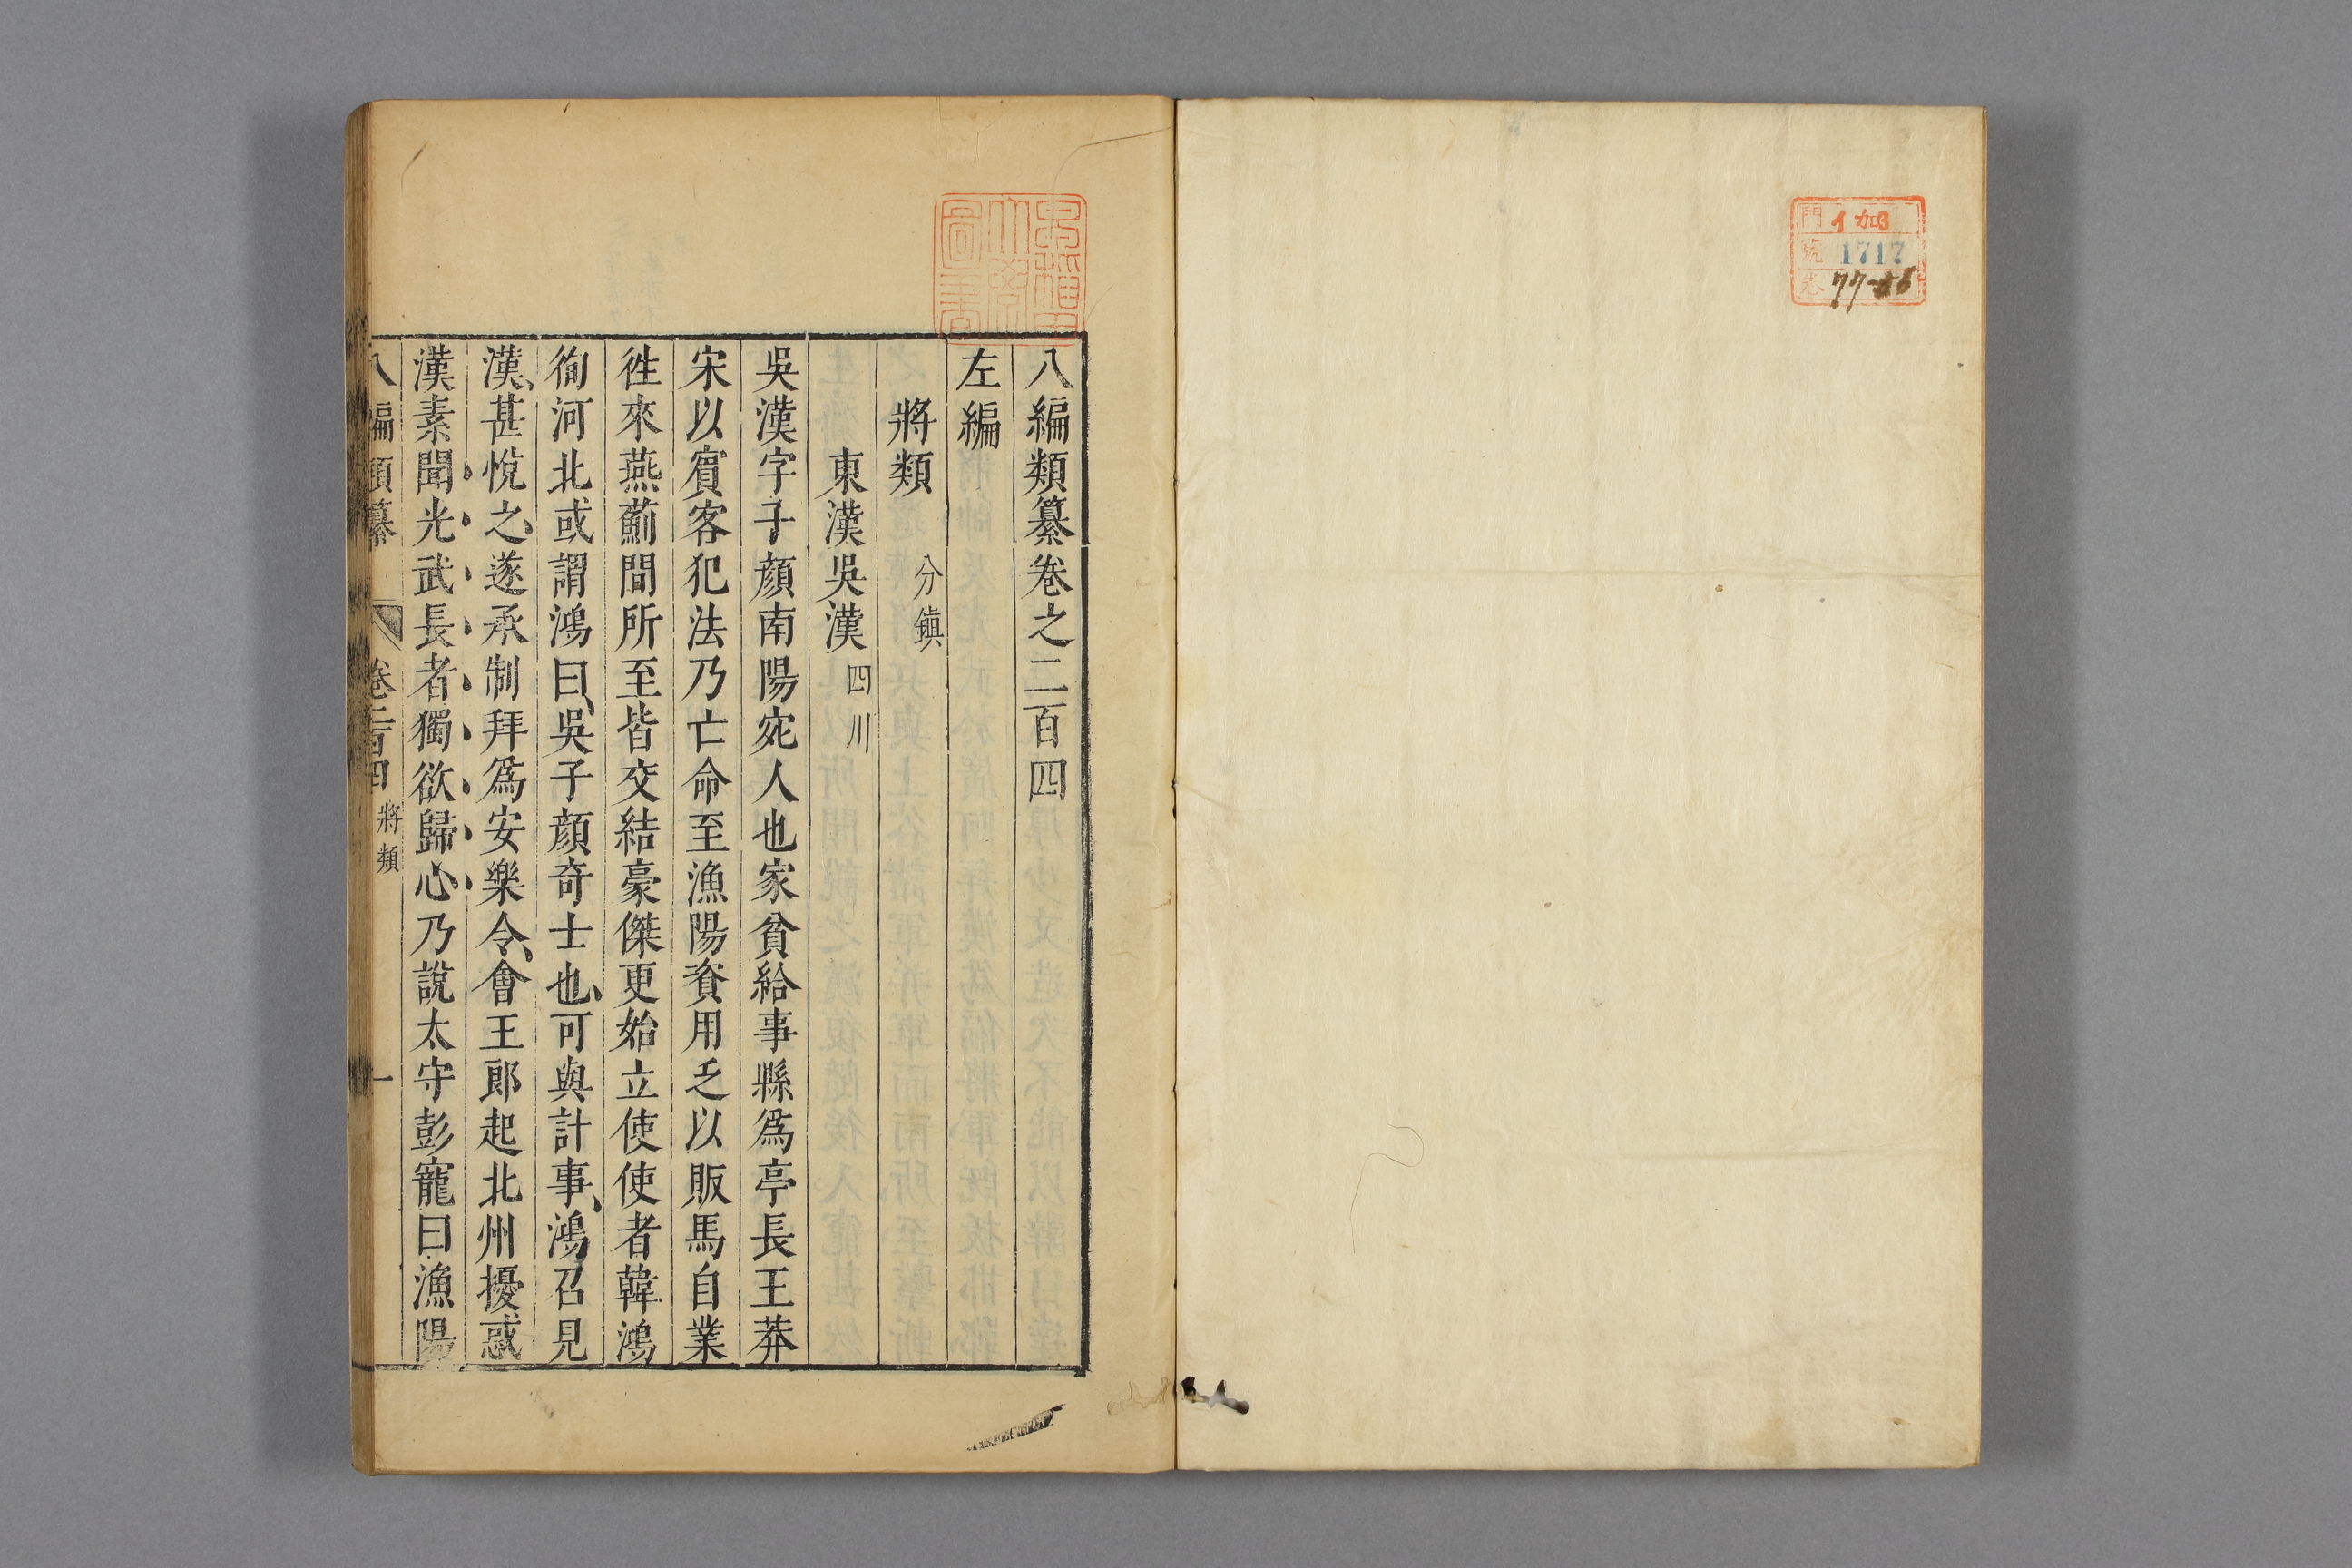 門 イ 加3
號 1717
卷 77-
早稲田大學圖書
八編類纂卷之二百四
左編
將類 分鎮
東漢吳漢 四川
吳漢字子顏南陽宛人也家貧給事縣爲亭長王莽
宋以賓客犯法乃亡命至漁陽資用乏以販馬自業
徃來燕薊間所至皆交結豪傑更始立使使者韓鴻
徇河北或謂鴻曰、吳子顏奇士也、可與計事、鴻召見
漢、甚悅之、遂承制拜爲安樂令、會王郎起北州擾惑
漢素聞光武長者獨欲歸心乃說太守彭寵曰漁陽
八編類纂 卷二百四 將類 一